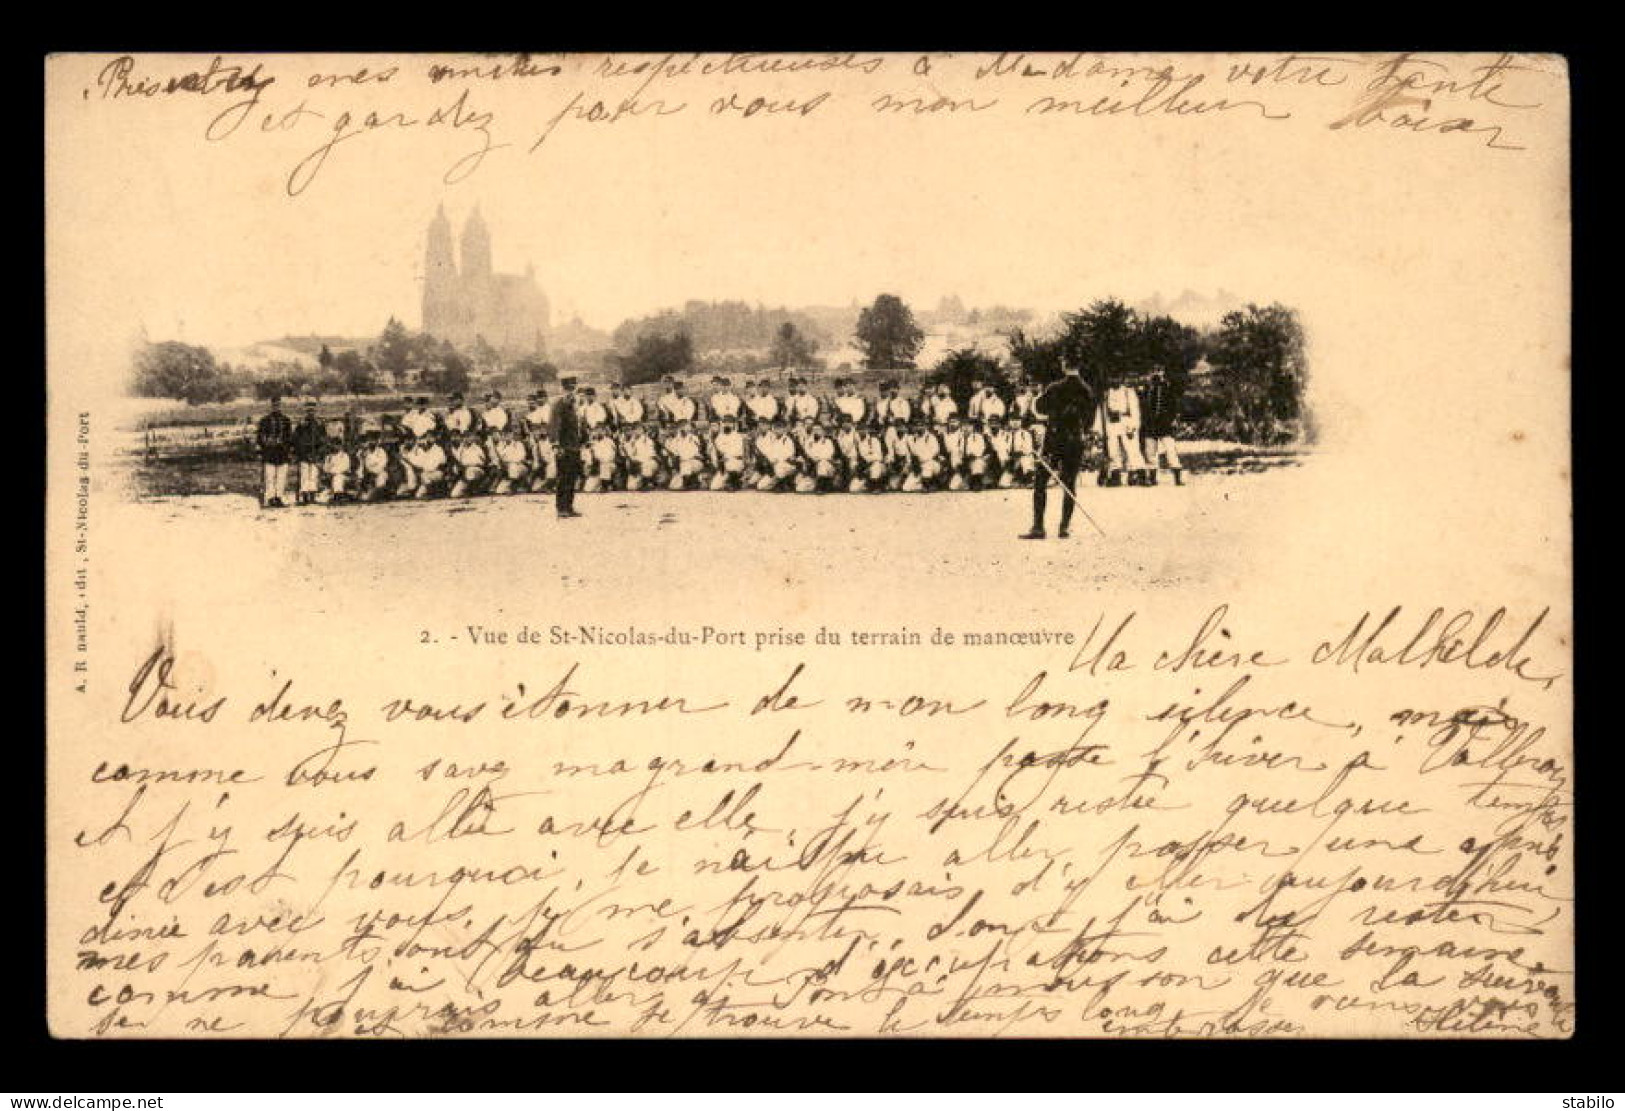 Présentez mes amitiés respectueuses à Madame votre tante
et gardez pour vous mon meilleur baiser
A. R nauld, édit , St-Nicolas-du-Port
2. - Vue de St-Nicolas-du-Port prise du terrain de manœuvre
Ma chère Mathilde,
Vous devez vous étonner de mon long silence, mais
comme vous savez ma grand-mère passe l'hiver à
et j'y suis allée avec elle, j'y suis resté quelque temps
et c'est pourquoi je n'ai pu aller passer une après
dinée avec vous. Je me proposais d'y aller aujourd'hui
mes parents ont du s'absenter, donc j'ai du rester
comme j'ai beaucoup d'occupations cette semaine
je ne pourrais aller à Pont à Mousson que la
et comme je trouve le temps long je viens vous
embrasser Hélène
delcampe.net
stabilo